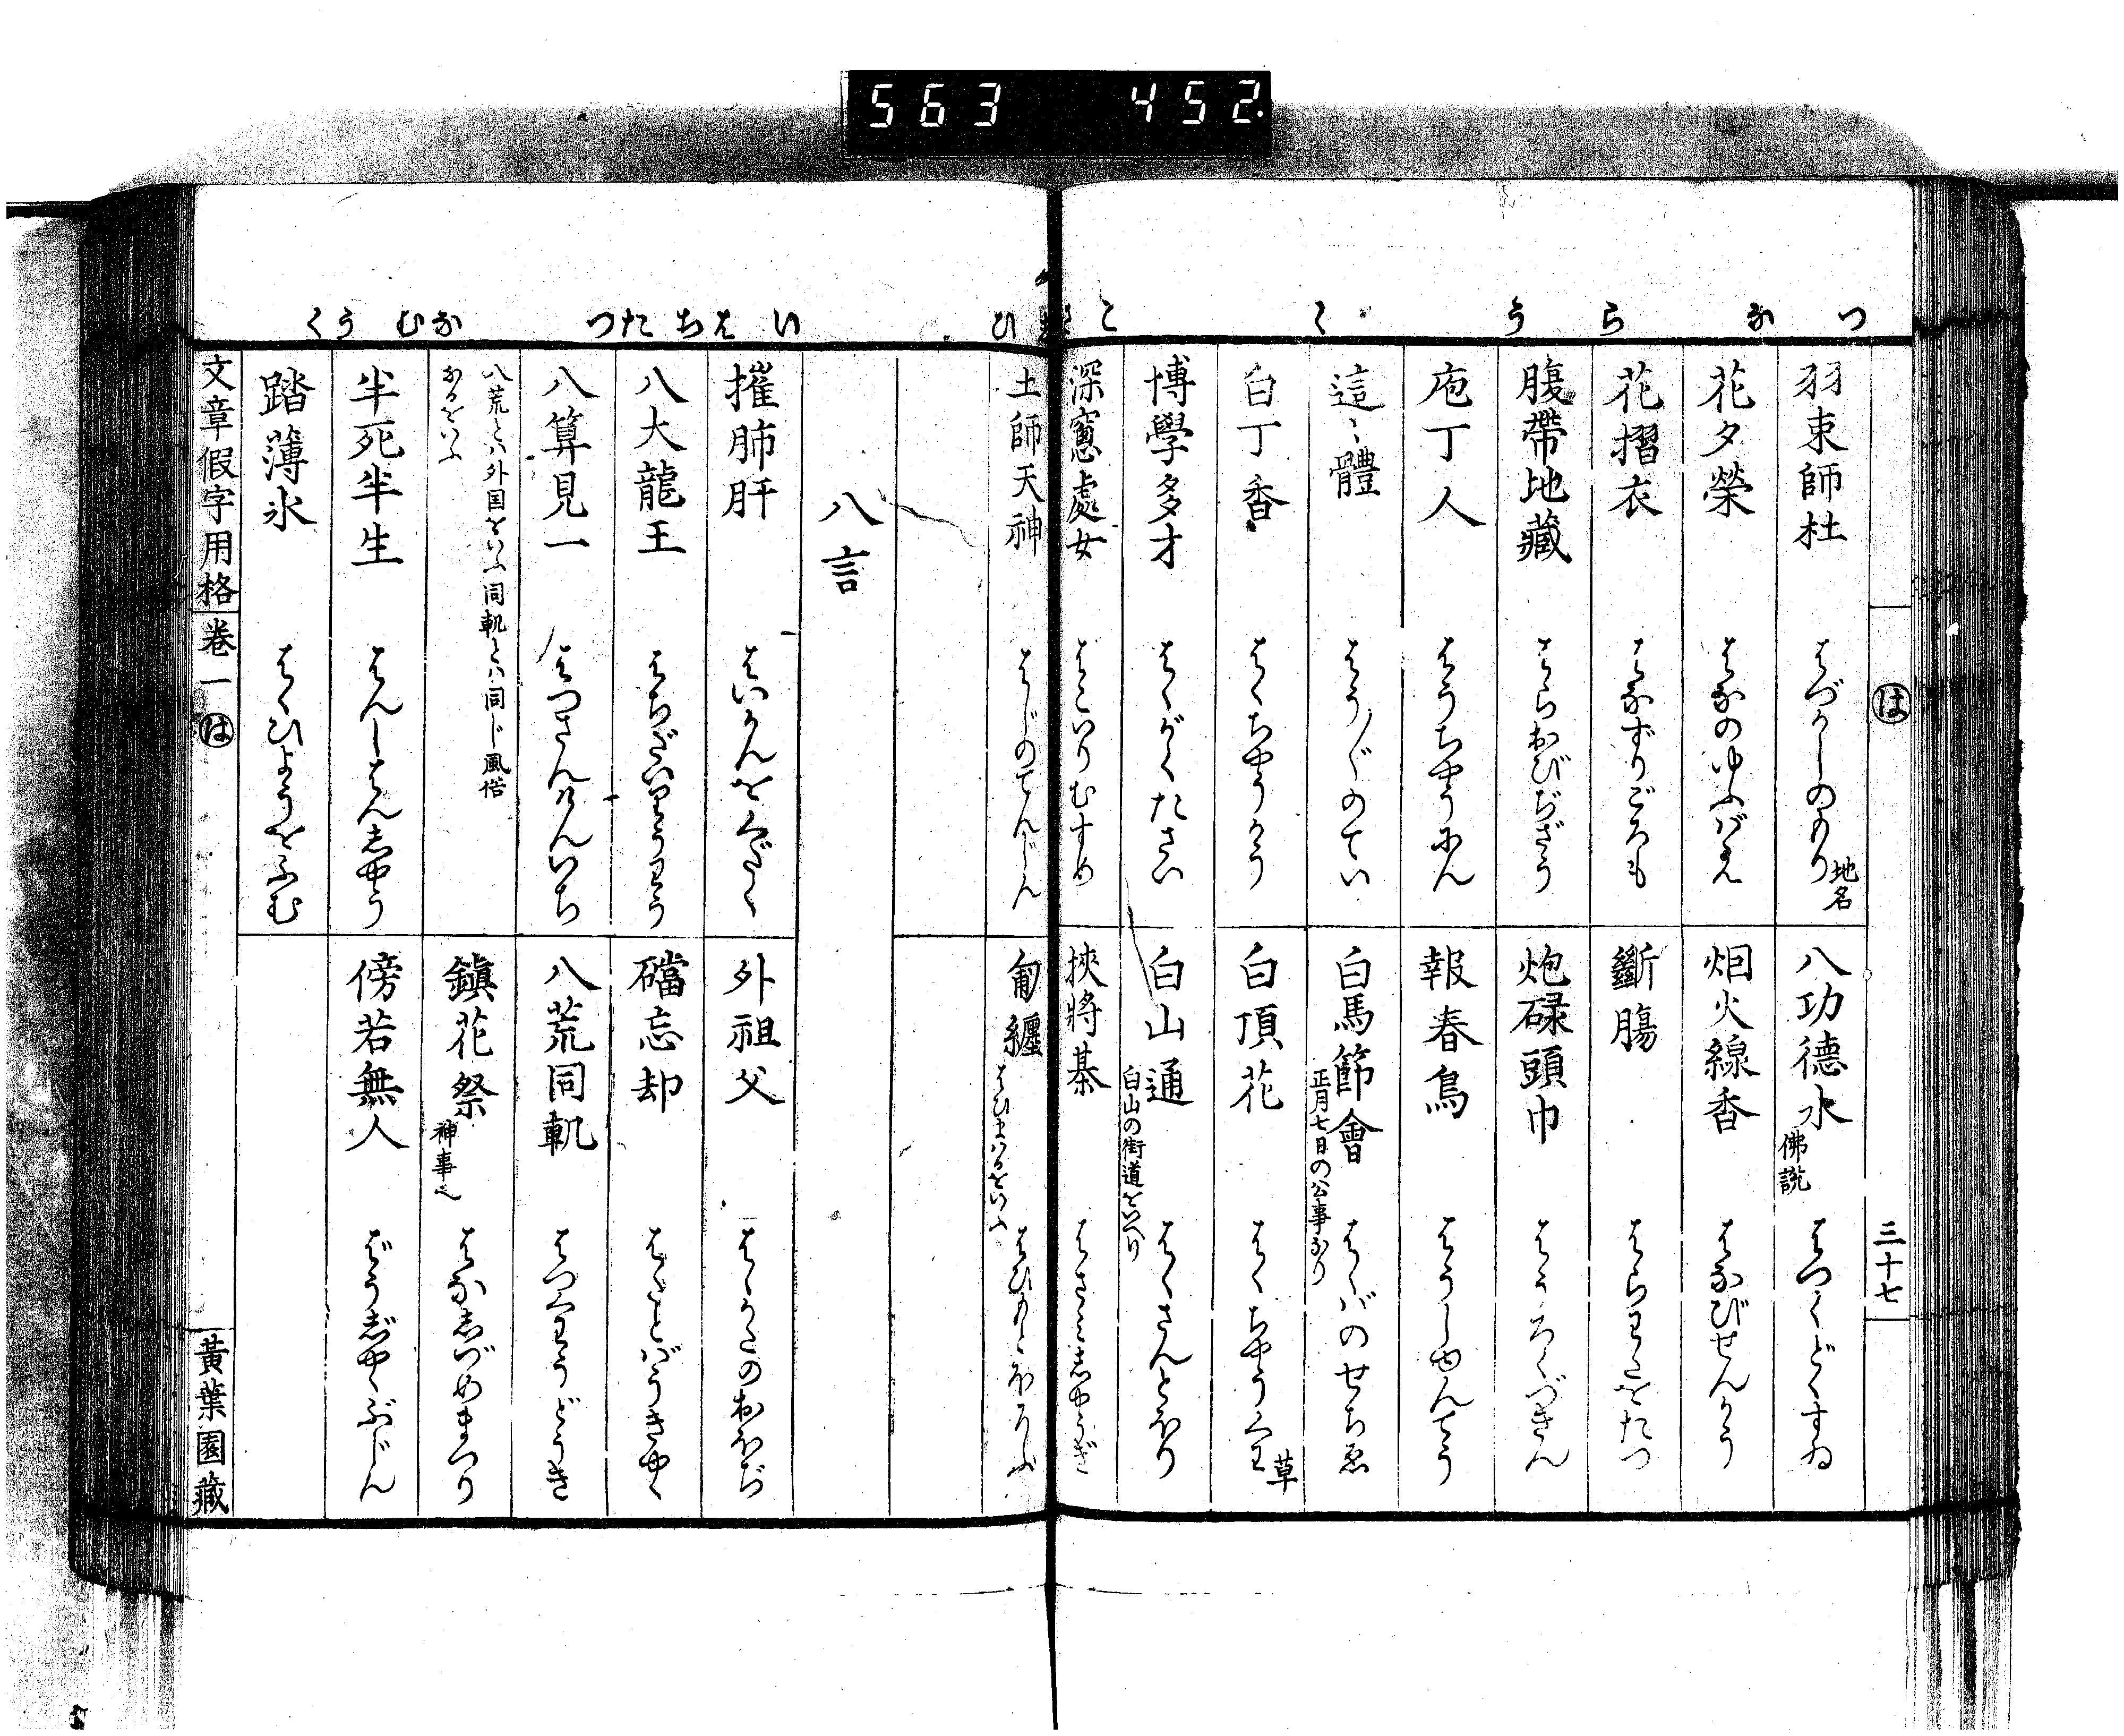 563 452
つ
な
ら
う
く
こ
は
三十七
羽束師杜 はづかしのもり 地名
八功德水 佛説 はつくどくすゐ
花夕榮 はなのゆふばえ
烟火線香 はなびせんかう
花摺衣 はなずりごろも
斷膓 はらわたをたつ
腹帶地藏 はらおびぢざう
炮碌頭巾 はうろくづきん
庖丁人 はうちやうにん
報春鳥 はうしゆんてう
這〻體 はう〳〵のてい
白馬節會 正月七日の公事なり はくバのせちゑ
白丁香 はくちやうかう
白頂花 はくちやうくわ 草
博學多才 はくがくたさい
白山通 白山の街道をいへり はくさんとほり
深窻處女 はこいりむすめ
挾將棊 はさミしやうぎ
ひ
い
は
ち
た
つ
な
む
う
く
土師天神 はしじのてんじん
匍纏 はひまハるをいふ はひもとほろふ
八言
摧肺肝 はいかんをくだく
外祖父 はゝかたのおほぢ
八大龍王 はちだいりうわう
礑忘却 はたとばうきやく
八算見一 はつさんけんいち
八荒同軌 はつくわうどうき
八荒とハ外国をいふ同軌とハ同じ風俗
なるをいふ
鎭花祭 神事也 はなしづめまつり
半死半生 はんしはんしやう
傍若無人 ばうじやくぶじん
踏薄氷 はくひようをふむ
文章假字用格 卷一 は
黃葉園藏